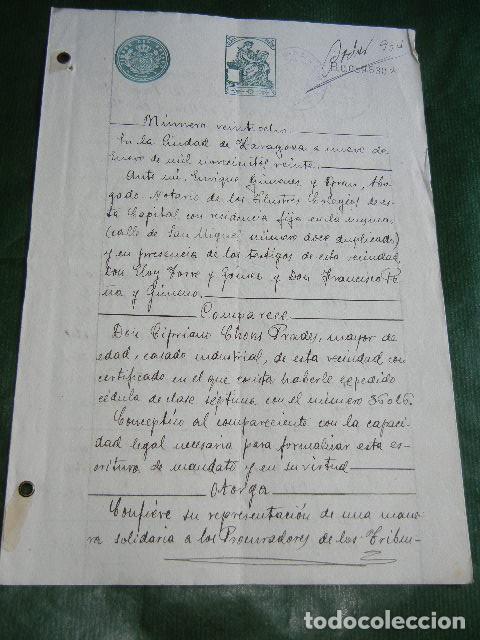 Poder 954
Número veintiocho
En la Ciudad de Zaragoza a nueve de
Enero de mil novecientos veinte.
Ante mí, Enrique Gimenez y Gran, Abo-
gado Notario de los Ilustres Colegios de es-
ta Capital con residencia fija en la misma
(calle de San Miguel número doce duplicado)
y en presencia de los testigos de esta vecindad
Don Eloy Torre y Gomez y Don Francisco Pe-
ña y Gimeno.
Comparece
Don Cipriano Chons Prades, mayor de
edad, casado industrial, de esta vecindad con
certificado en el que consta haberle expedido
cédula de clase séptima con el número 36026.
Conceptúo al compareciente con la capaci-
dad legal necesaria para formalizar esta es-
critura de mandato y en su virtud
Otorga
Confiere su representación de una mane-
ra solidaria a los Procuradores de los Tribu-
todocoleccion.net